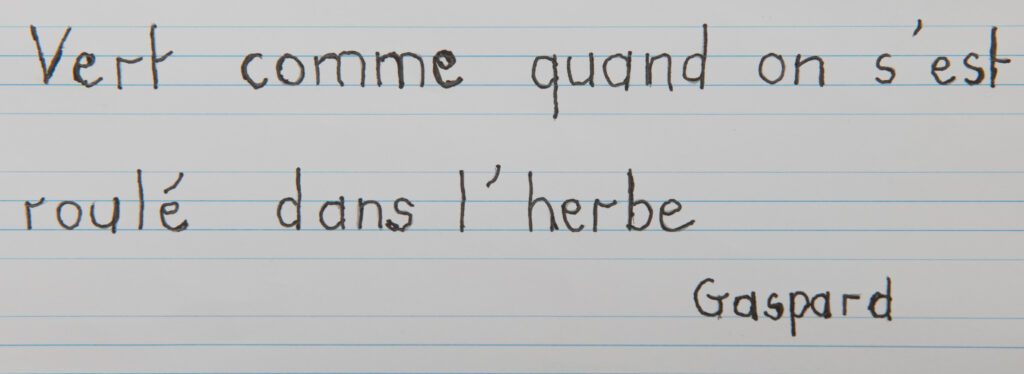 Vert comme quand on s'est
roulé dans l'herbe
Gaspard